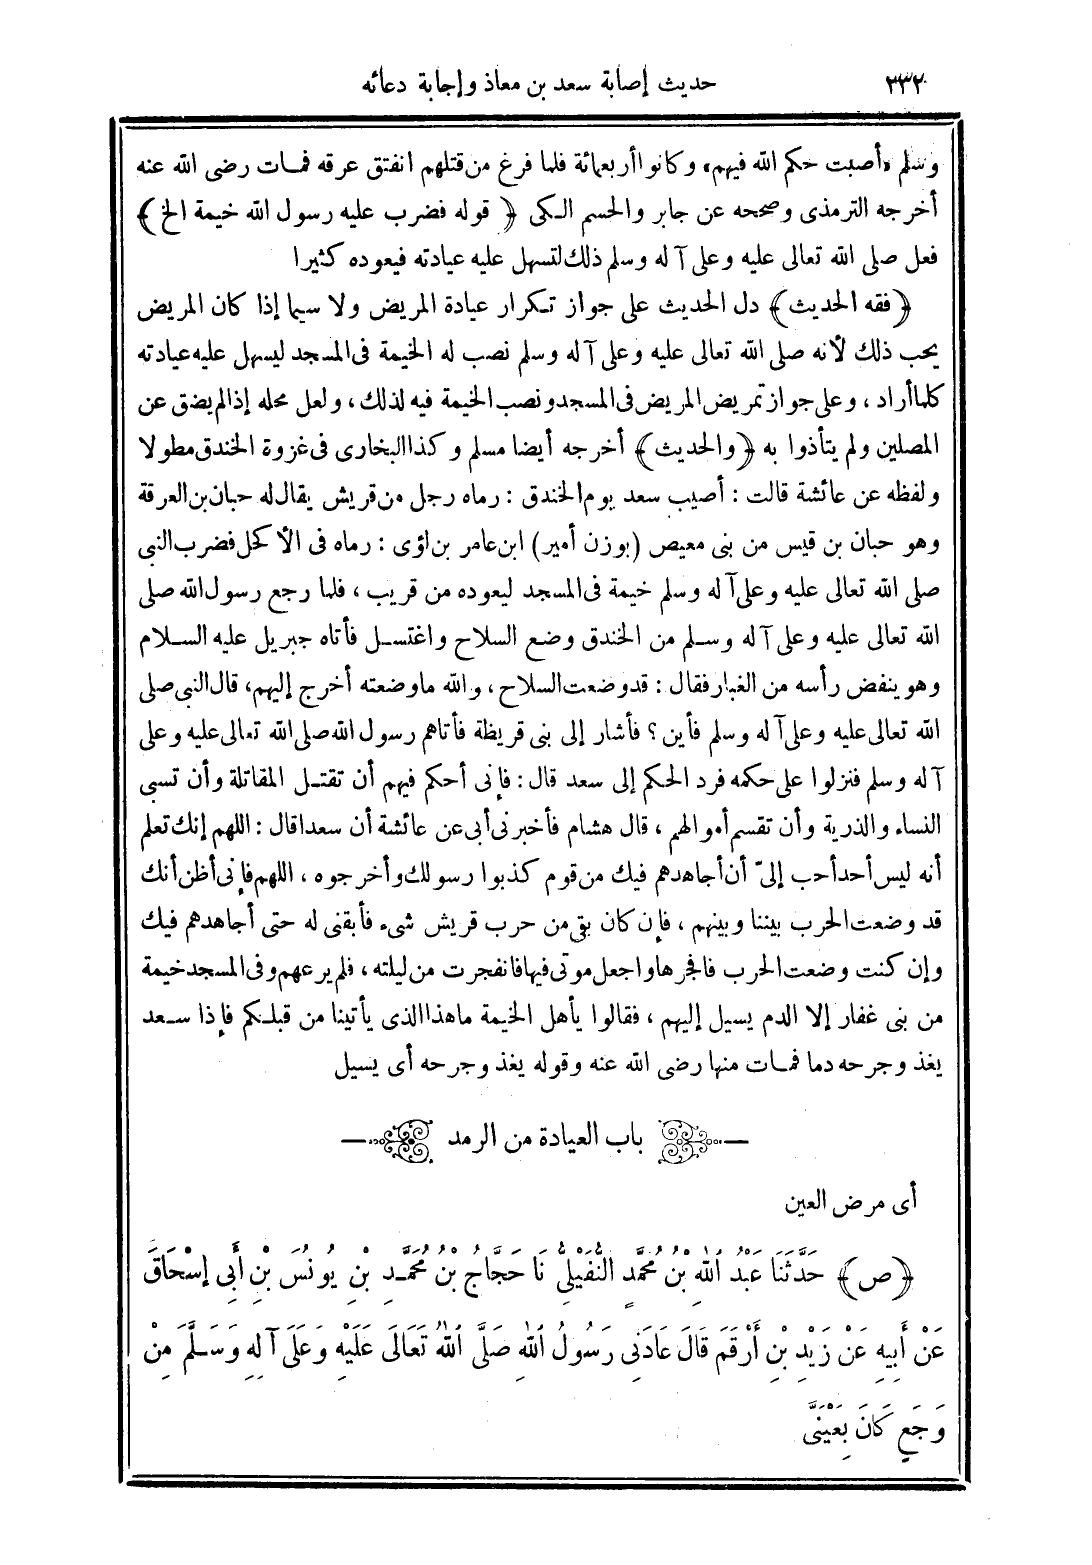 ٢٣٢ حديث إصابة سعد بن معاذ وإجابة دعائه
وسلم «أصبت حكم الله فيهم» وكانوا أربعمائة فلما فرغ من قتلهم انفتق عرقه فمات رضى الله عنه
أخرجه الترمذى وصححه عن جابر والحسم الكى ﴿ قوله فضرب عليه رسول الله خيمة الخ ﴾
فعل صلى الله تعالى عليه وعلى آله وسلم ذلك لتسهل عليه عيادته فيعوده كثيرا
﴿فقه الحديث﴾ دل الحديث على جواز تكرار عيادة المريض ولا سيما إذا كان المريض
يحب ذلك لأنه صلى الله تعالى عليه وعلى آله وسلم نصب له الخيمة فى المسجد ليسهل عليه عيادته
كلما أراد ، وعلى جواز تمريض المريض فى المسجد ونصب الخيمة فيه لذلك ، ولعل محله إذا لم يضق عن
المصلين ولم يتأذوا به ﴿والحديث﴾ أخرجه أيضا مسلم وكذا البخارى فى غزوة الخندق مطولا
ولفظه عن عائشة قالت : أصيب سعد يوم الخندق : رماه رجل من قريش يقال له حبان بن العرقة
وهو حبان بن قيس من بنى معيص (بوزن أمير) ابن عامر بن لؤى : رماه فى الأكحل فضرب النبى
صلى الله تعالى عليه وعلى آله وسلم خيمة فى المسجد ليعوده من قريب ، فلما رجع رسول الله صلى
الله تعالى عليه وعلى آله وسلم من الخندق وضع السلاح واغتسل فأتاه جبريل عليه السلام
وهو ينفض رأسه من الغبار فقال : قد وضعت السلاح ، والله ما وضعته أخرج إليهم، قال النبى صلى
الله تعالى عليه وعلى آله وسلم فأين ؟ فأشار إلى بنى قريظة فأتاهم رسول الله صلى الله تعالى عليه وعلى
آله وسلم فنزلوا على حكمه فرد الحكم إلى سعد قال : فإنى أحكم فيهم أن تقتل المقاتلة وأن تسبى
النساء والذرية وأن تقسم أموالهم ، قال هشام فأخبرنى أبى عن عائشة أن سعدا قال : اللهم إنك تعلم
أنه ليس أحد أحب إلىّ أن أجاهدهم فيك من قوم كذبوا رسولك وأخرجوه ، اللهم فإنى أظن أنك
قد وضعت الحرب بيننا وبينهم ، فإن كان بقى من حرب قريش شىء فأبقنى له حتى أجاهدهم فيك
وإن كنت وضعت الحرب فافجرها واجعل موتى فيها فانفجرت من ليلته ، فلم يرعهم وفى المسجد خيمة
من بنى غفار إلا الدم يسيل إليهم ، فقالوا يأهل الخيمة ما هذا الذى يأتينا من قبلكم فإذا سعد
يغذ وجرحه دما فمات منها رضى الله عنه وقوله يغذ وجرحه أى يسيل
باب العيادة من الرمد
أى مرض العين
﴿ص﴾ حَدَّثَنَا عَبْدُ اللهِ بْنُ مُحَمَّدٍ النُّفَيْلِىُّ نَا حَجَّاجُ بْنُ مُحَمَّدٍ بْنِ يُونُسَ بْنِ أَبِى إِسْحَاقَ
عَنْ أَبِيهِ عَنْ زَيْدِ بْنِ أَرْقَمَ قَالَ عَادَنِى رَسُولُ اللهِ صَلَّى اللهُ تَعَالَى عَلَيْهِ وَعَلَى آلِهِ وَسَلَّمَ مِنْ
وَجَعٍ كَانَ بِعَيْنَىَّ